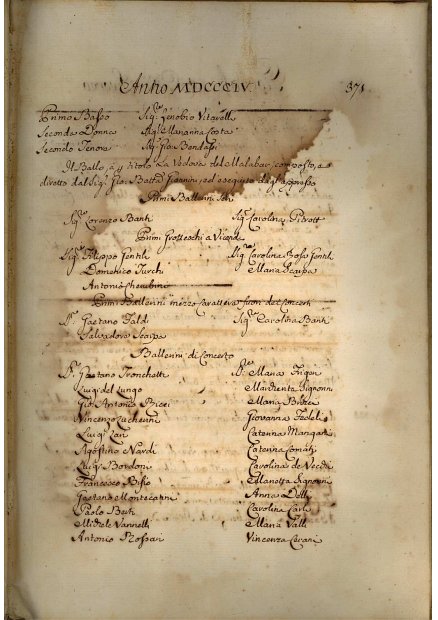 Anno MDCCCIV. 371
Primo Basso Sig.r Zenobio Vitarelli
Seconda Donna Sig.ra Marianna Costa
Secondo Tenore Sig.r Gio. Bondassi
Il Ballo, à p. titolo La Vedova del Malabar, composto, e
diretto dal Sig.r Gio. Batta ed eseguito dagl'appresso
Primi Ballerini Serj
Sig.r Lorenzo Banti Sig.ra Carolina Pitrott
Primi Grotteschi a Vicenda
Sig.r Filippo Gentili Sig.ra Carolina Bossi Gentili
Domenico Turchi Maria Scarpa
Antonio Cherubini
Primi Ballerini mezzo Carattere fuori dei Concerti
S.r Gaetano Faldi Sig.ra Carolina Banti
Salvadore Scarpa
Ballerini di Concerto
S.r Gaetano Tronchetti S.re Maria
Luigi del Lungo
Gio. Antonio Maria
Vincenzo Giovanna Fedeli
Luigi Zan Caterina
Agostino Nardi Caterina
Luigi Bordoni Carolina de Vecchi
Francesco Bisio
Gaetano Montecatini Anna
Paolo Berti Carolina Carli
Michele Vannelli Maria Valli
Antonio Rossari Vincenza Cerani